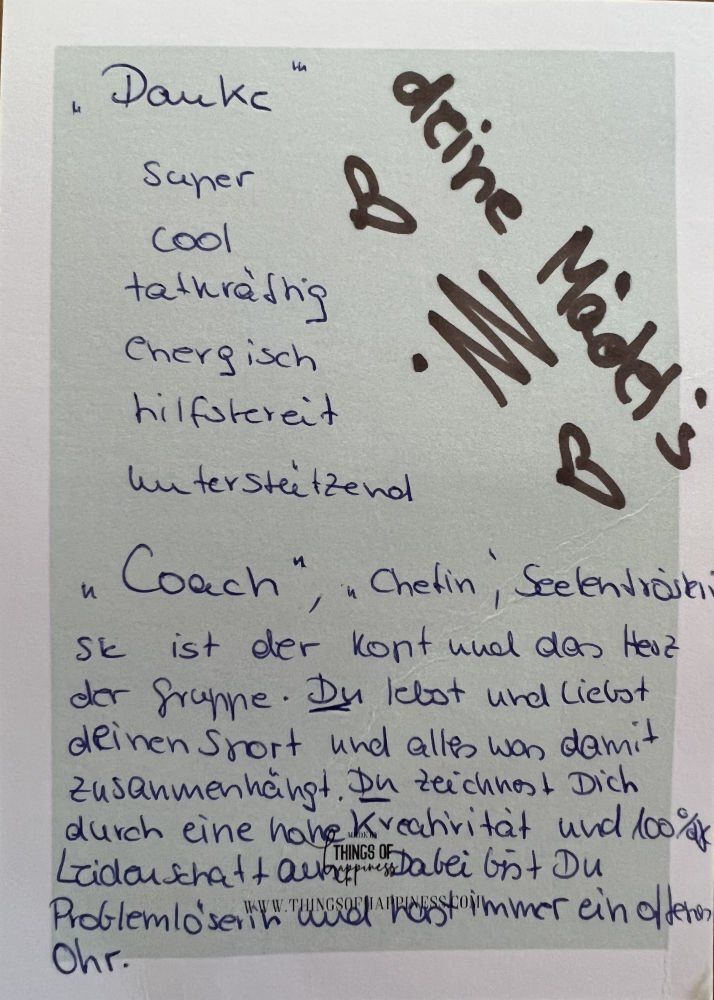 „Danke"
super
cool
tatkräftig
energisch
hilfsbereit
unterstützend
deine Mädel's
„Coach", „Chefin', Seelentrösterin
sie ist der Kopf und das Herz
der Gruppe. Du lebst und Liebst
deinen Sport und alles was damit
zusammenhängt. Du zeichnest Dich
durch eine hohe Kreativität und 100%ige
Leidenschaft aus. Dabei bist Du
Problemlöserin und hast immer ein offenes
Ohr.
THINGS OF
happiness
WWW.THINGSOFHAPPINESS.COM